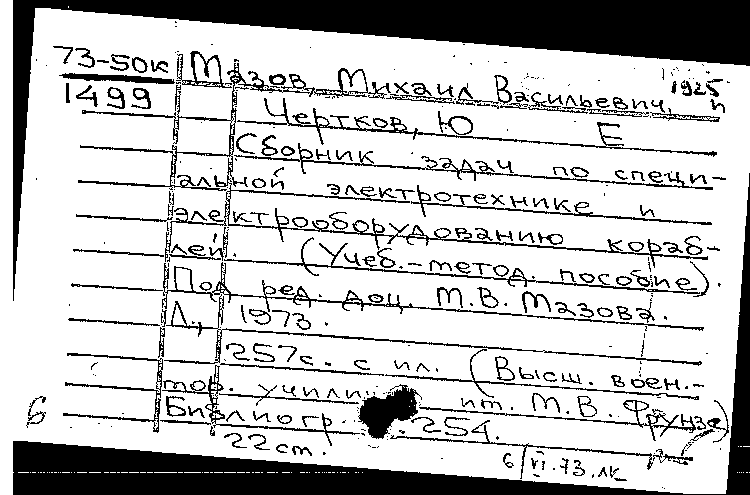 73-50к
1499
Мазов, Михаил Васильевич, 1925 и
Чертков, Ю Е
Сборник задач по специ-
альной электротехнике и
электрооборудованию кораб-
лей. (Учеб.-метод. пособие).
Под ред. доц. М.В. Мазова.
Л., 1973.
257с. с ил. (Высш. воен.-
мор. учили им. М.В. Фрунзе)
Библиогр. 254.
22 см.
6
6/VI.73.лк